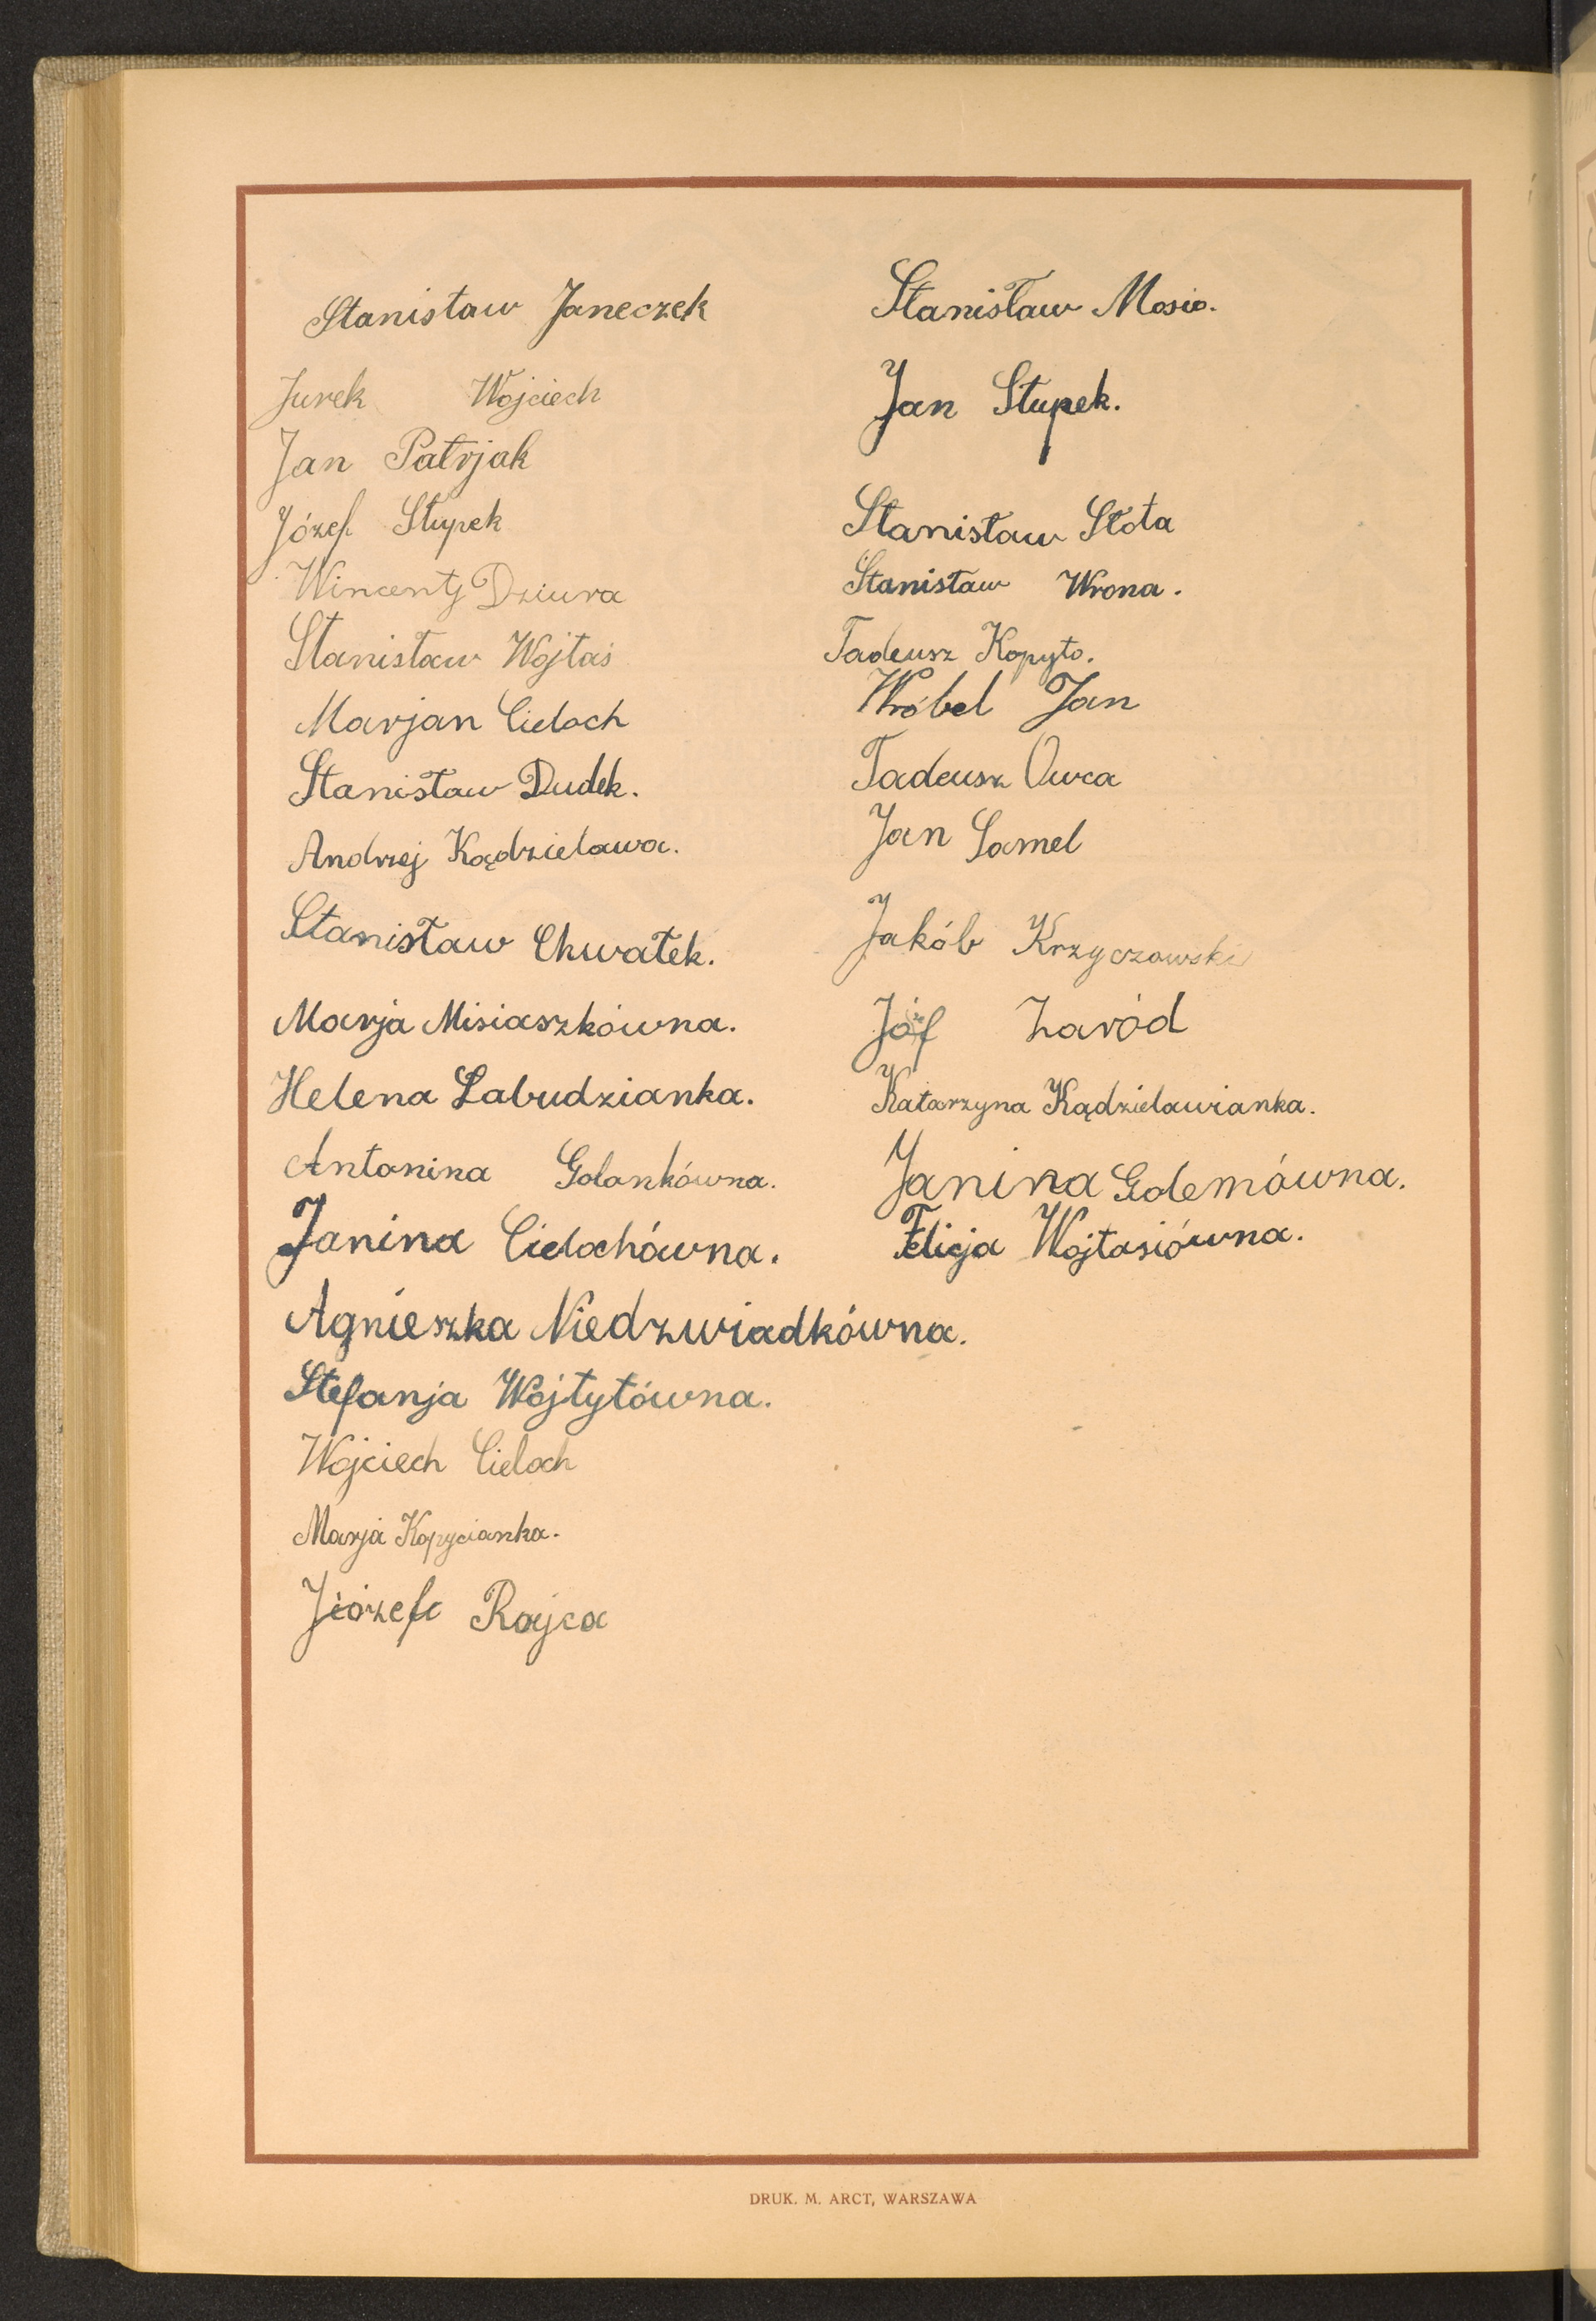 Stanisław Janeczek
Jurek Wojciech
Jan Patrjak
Józef Słupek
Wincenty Dziura
Stanisław Wojtaś
Marjan Cieloch
Stanisław Dudek.
Andrzej Kądzielawa.
Stanisław Chwałek.
Marja Misiaszkówna.
Helena Łabudzianka.
Antonina Golonkówna.
Janina Cielochówna.
Agnieszka Niedzwiadkówna.
Stefanja Wojtytówna.
Wojciech Cieloch
Marja Kopycianka.
Józef Rajca
Stanisław Mosio.
Jan Słupek.
Stanisław Słota
Stanisław Wrona.
Tadeusz Kopyto.
Wróbel Jan
Tadeusz Owca
Jan Samel
Jakób Krzyczowski
Józf Zaród
Katarzyna Kądzielawianka.
Janina Golemówna.
Felicja Wojtasiówna.
DRUK. M. ARCT, WARSZAWA